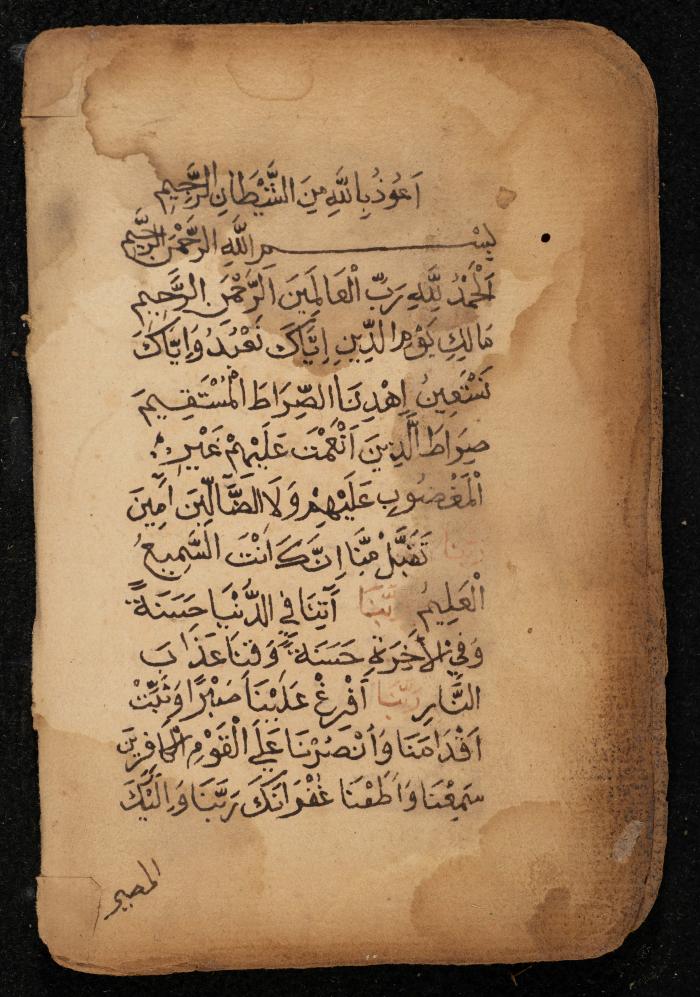 اَعُوذُ بِاللَّهِ مِنَ الشَّيْطَانِ الرَّجِيمِ
بِسْمِ اللَّهِ الرَّحْمَنِ الرَّحِيمِ
اَلْحَمْدُ لِلَّهِ رَبِّ الْعَالَمِينَ الرَّحْمَنِ الرَّحِيمِ
مَالِكِ يَوْمِ الدِّينِ اِيَّاكَ نَعْبُدُ وَاِيَّاكَ
نَسْتَعِينُ اِهْدِنَا الصِّرَاطَ الْمُسْتَقِيمَ
صِرَاطَ الَّذِينَ اَنْعَمْتَ عَلَيْهِمْ غَيْرِ
الْمَغْضُوبِ عَلَيْهِمْ وَلَا الضَّالِّينَ اٰمِينَ
رَبَّنَا تَقَبَّلْ مِنَّا اِنَّكَ اَنْتَ السَّمِيعُ
الْعَلِيمُ رَبَّنَا آتِنَا فِي الدُّنْيَا حَسَنَةً
وَفِي الْاٰخِرَةِ حَسَنَةً وَقِنَا عَذَابَ
النَّارِ رَبَّنَا اَفْرِغْ عَلَيْنَا صَبْرًا وَثَبِّتْ
اَقْدَامَنَا وَانْصُرْنَا عَلَى الْقَوْمِ الْكَافِرِينَ
سَمِعْنَا وَاَطَعْنَا غُفْرَانَكَ رَبَّنَا وَاِلَيْكَ
المصير